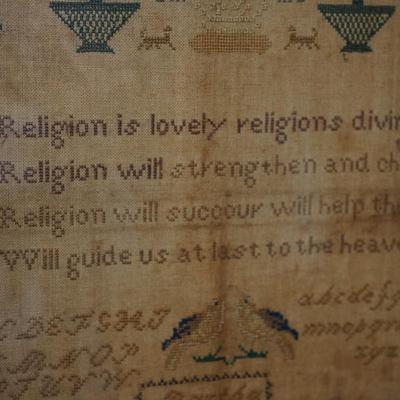 Religion is lovely religions divin
Religion will strengthen and ch
Religion will succour will help the
Will guide us at last to the heave
abcdefg
C D E F G H I
mnopqr
xyz
M N O P
T U V W
Martha